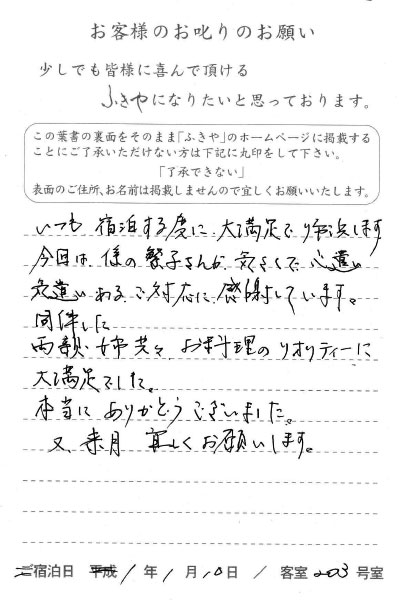 お客様のお叱りのお願い
少しでも皆様に喜んで頂ける
ふきやになりたいと思っております。
この葉書の裏面をそのまま「ふきや」のホームページに掲載する
ことにご了承いただけない方は下記に丸印をして下さい。
「了承できない」
表面のご住所、お名前は掲載しませんので宜しくお願いいたします。
いつも 宿泊する度に 大満足で 帰浜します
今回は、係の 繁子さんが 気さくで、心遣い
気遣いあるご対応に 感謝しています。
同伴した
両親、姉共々、お料理の クオリティーに
大満足でした。
本当に ありがとうございました。
又、来月 宜しくお願いします。
ご宿泊日 平成 1年 1月 10日 / 客室 203 号室